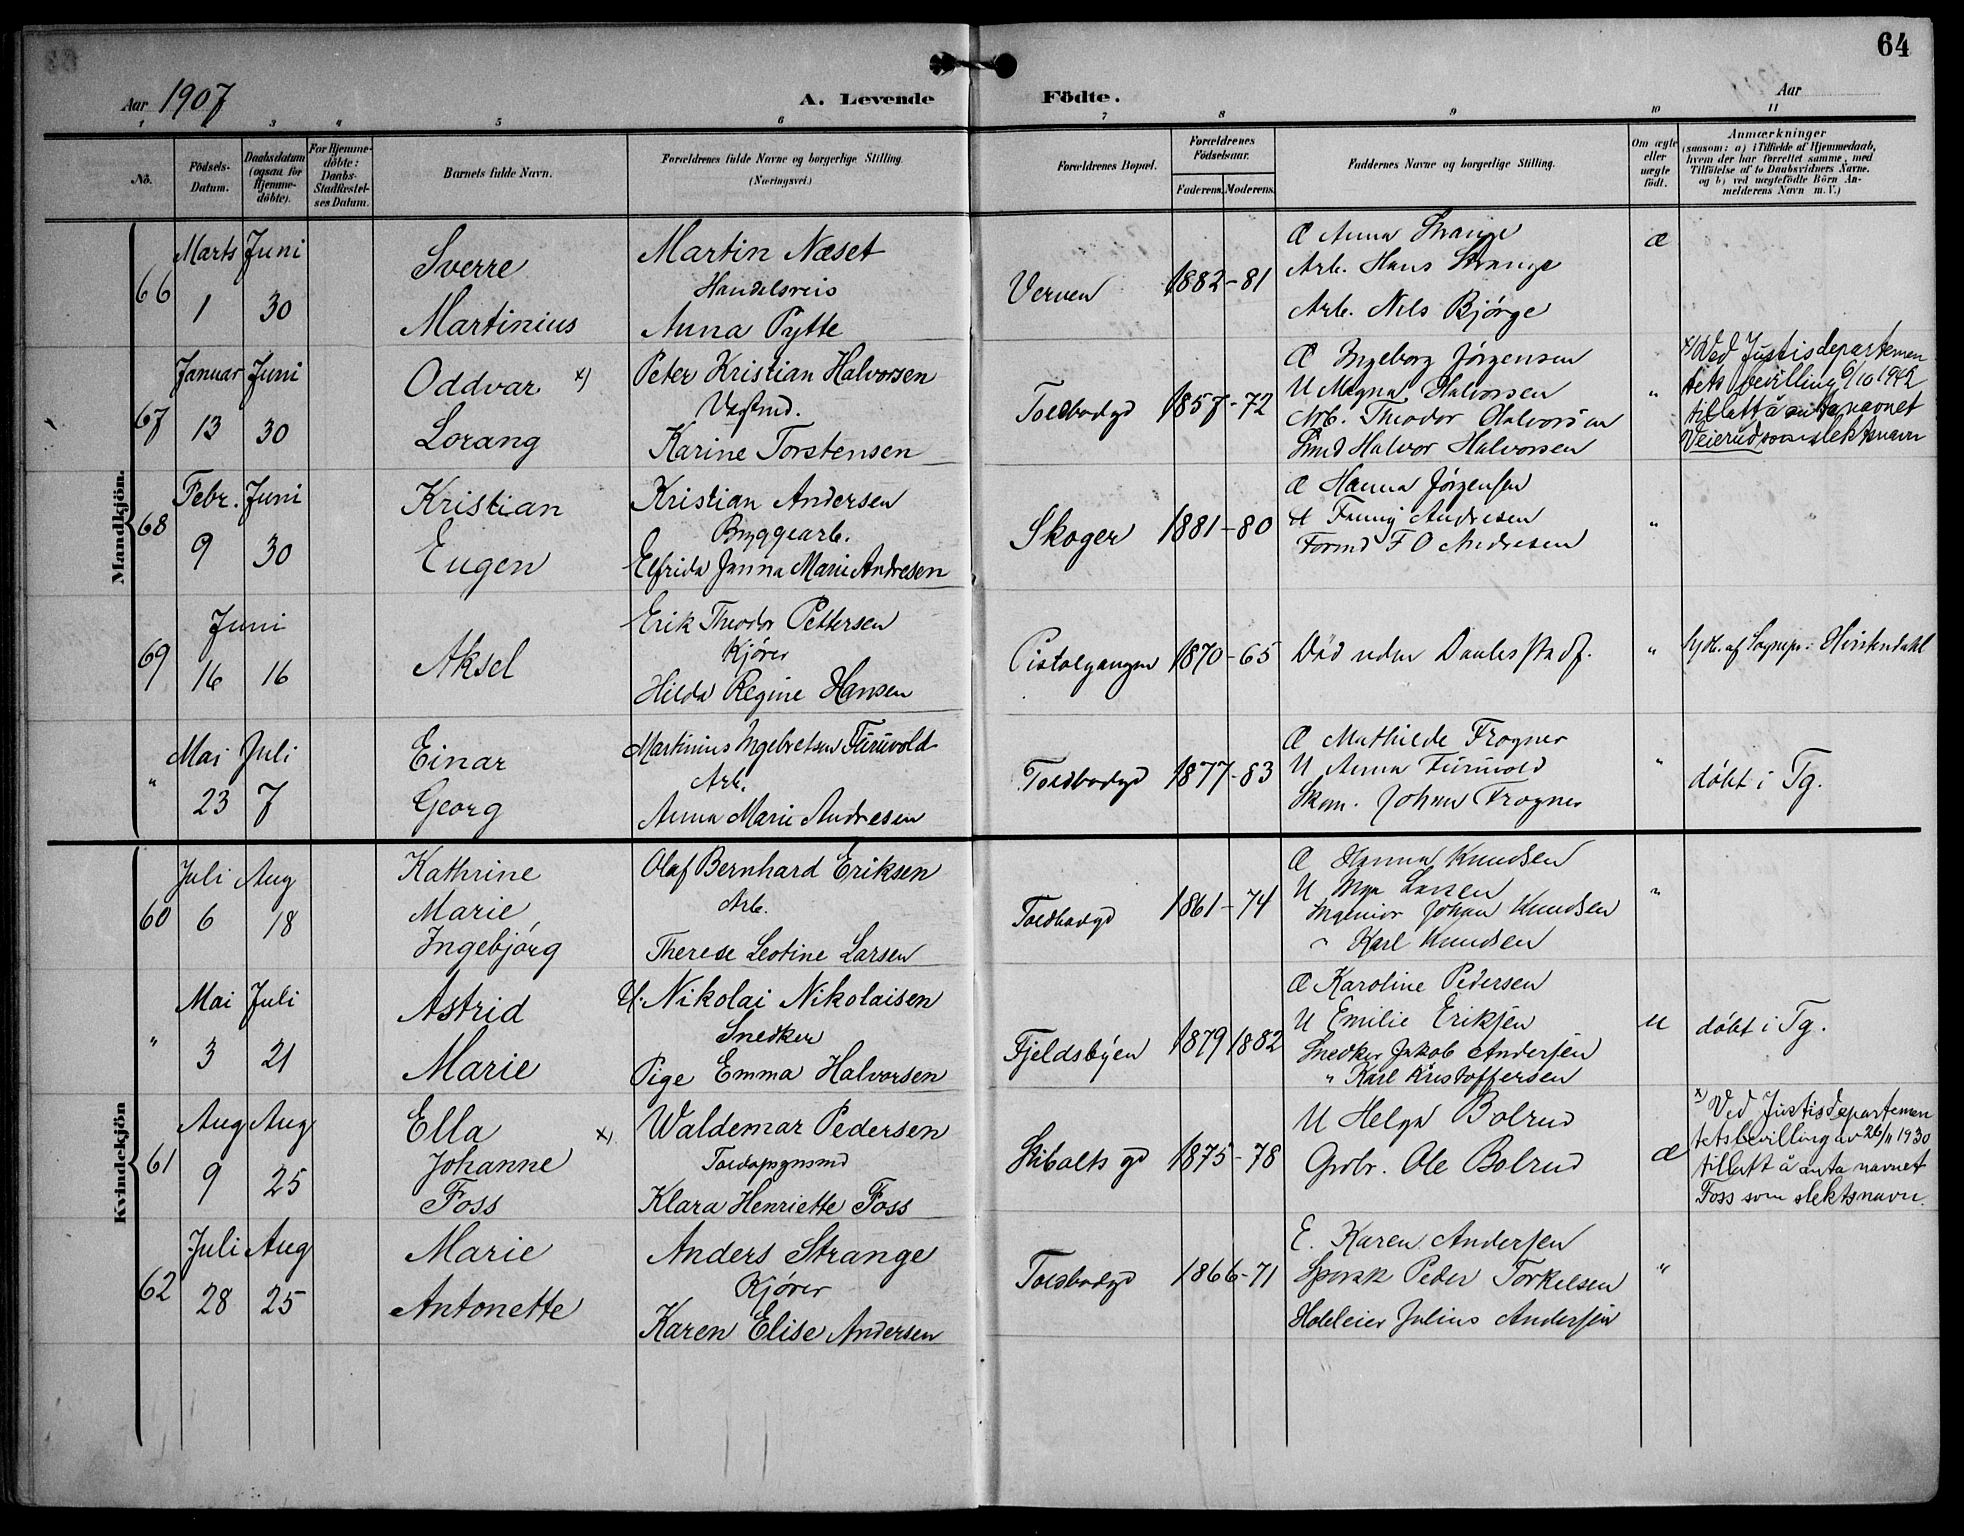 64
Aar 1907
A. Levende Födte.
Aar
1 2 3 4 5 6 7 8 9 10 11
No.
Födsels-Datum.
Daabsdatum (ogsaa for Hjemme-döbte).
For Hjemme-döbte: Daabs-Stadfæstel-ses Datum.
Barnets fulde Navn.
Forældrenes fulde Navne og borgerlige Stilling.
(Næringsvei.)
Forældrenes Bopæl.
Forældrenes Födselsaar.
Faderens. Moderens.
Faddernes Navne og borgerlige Stilling.
Om ægte eller uægte födt.
Anmærkninger
(saasom: a) i Tilfælde af Hjemmedaab,
hvem der har forrettet samme, med
Tilföielse af to Daabsvidners Navne.
og b) ved uægtefödte Börn An-
melderens Navn m. V.)
Mandkjön.
66
Marts Juni
1 30
Sverre
Martinius
Martin Næset
Handelsreis
Anna Pytte
Verven
1882-81
Æ Anna Strange
Arb. Hans Strange
Arb. Nils Bjørge
æ
67
Januar Juni
13 30
Oddvar x)
Lorang
Peter Kristian Halvorsen
Karine Torstensen
Toldbodgd
1857-72
Æ Ingeborg Jørgensen
U Magna Halvorsen
Arb. Theodor Halvorsen
Smed Halvor Halvorsen
"
x) Ved Justisdepartemen
tets bevilling 6/10 1942
tillatt å anta navnet
Veierud som slektsnavn
68
Febr. Juni
9 30
Kristian
Eugen
Kristian Andersen
Byggearb.
Elfrida Janna Marie Andresen
Skoger
1881-80
Æ Hanna Jørgensen
Fanny Andresen
Formd F O Andresen
"
69
Juni
16 16
Aksel
Erik Theodor Pettersen
Kjører
Hilda Regine Hansen
Pistolgangen
1870-65
Død uden Daabs stadf.
"
Hjdb. af
"
Mai Juli
23 7
Einar
Georg
Martinius Ingebretsen Furuvold
Arb.
Anna Marie Andresen
Toldbodgd
1877-83
Æ Mathilde Frogner
U Anna Furuvold
Skom. Johan Frogner
"
døbt i Tg.
Kvindekjön
60
Juli Aug
6 18
Kathrine
Marie
Ingebjørg
Olaf Bernhard Eriksen
Arb.
Therese Leotine Larsen
Toldbodgd
1861-74
Æ Hanna Knudsen
U Inga Larsen
Ingeniør Johan Knudsen
" Karl Knudsen
"
"
Mai Juli
3 21
Astrid
Marie
U. Nikolai Nikolaisen
Snedker
Pige Emma Halvorsen
Fjeldsbyen
1879 1882
Æ Karoline Pedersen
U Emilie Eriksen
Snedker Jakob Andersen
" Karl Kristoffersen
u
døbt i Tg.
61
Aug Aug
9 25
Ella x)
Johanne
Foss
Waldemar Pedersen
Toldopsynsmd
Klara Henriette Foss
Stibolts gd
1875-78
U Helga Bolrud
Grdbr. Ole Bolrud
æ
x) Ved Justisdepartemen
tets bevilling av 26/11 1930
tillatt å anta navnet
Foss som slektsnavn.
62
Juli Aug
28 25
Marie
Antonette
Anders Strange
Kjører
Karen Elise Andersen
Toldbodgd
1866-71
E. Karen Andersen
Peder Torkelsen
Julius Andersen
"